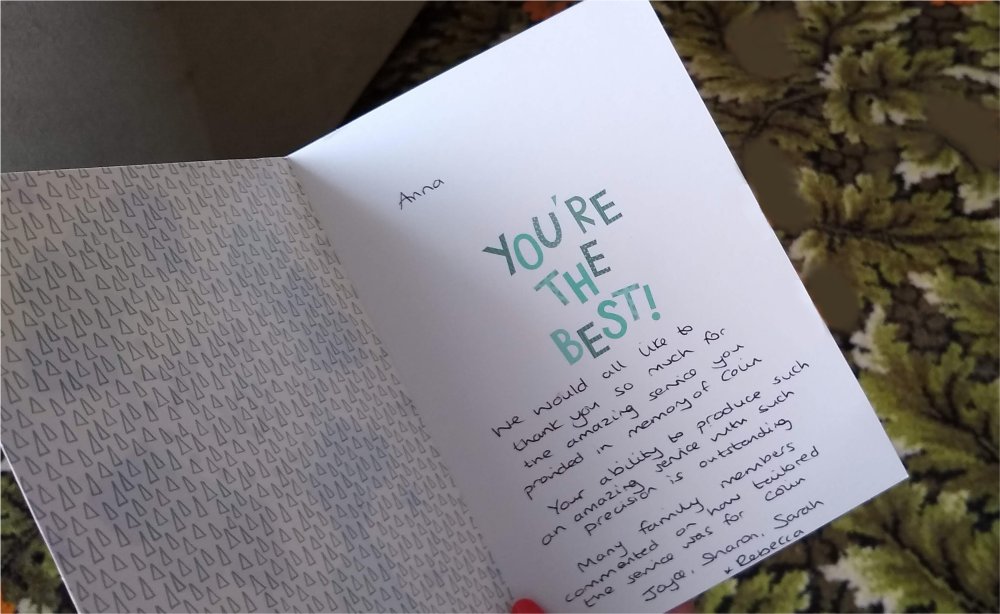 Anna
YOU'RE
THE
BEST!
We would all like to
thank you so much for
the amazing service you
provided in memory of Colin
Your ability to produce such
an amazing service with such
precision is outstanding
Many family members
commented on how tailored
the service was for Colin
Joyce, Sharon, Sarah
+ Rebecca